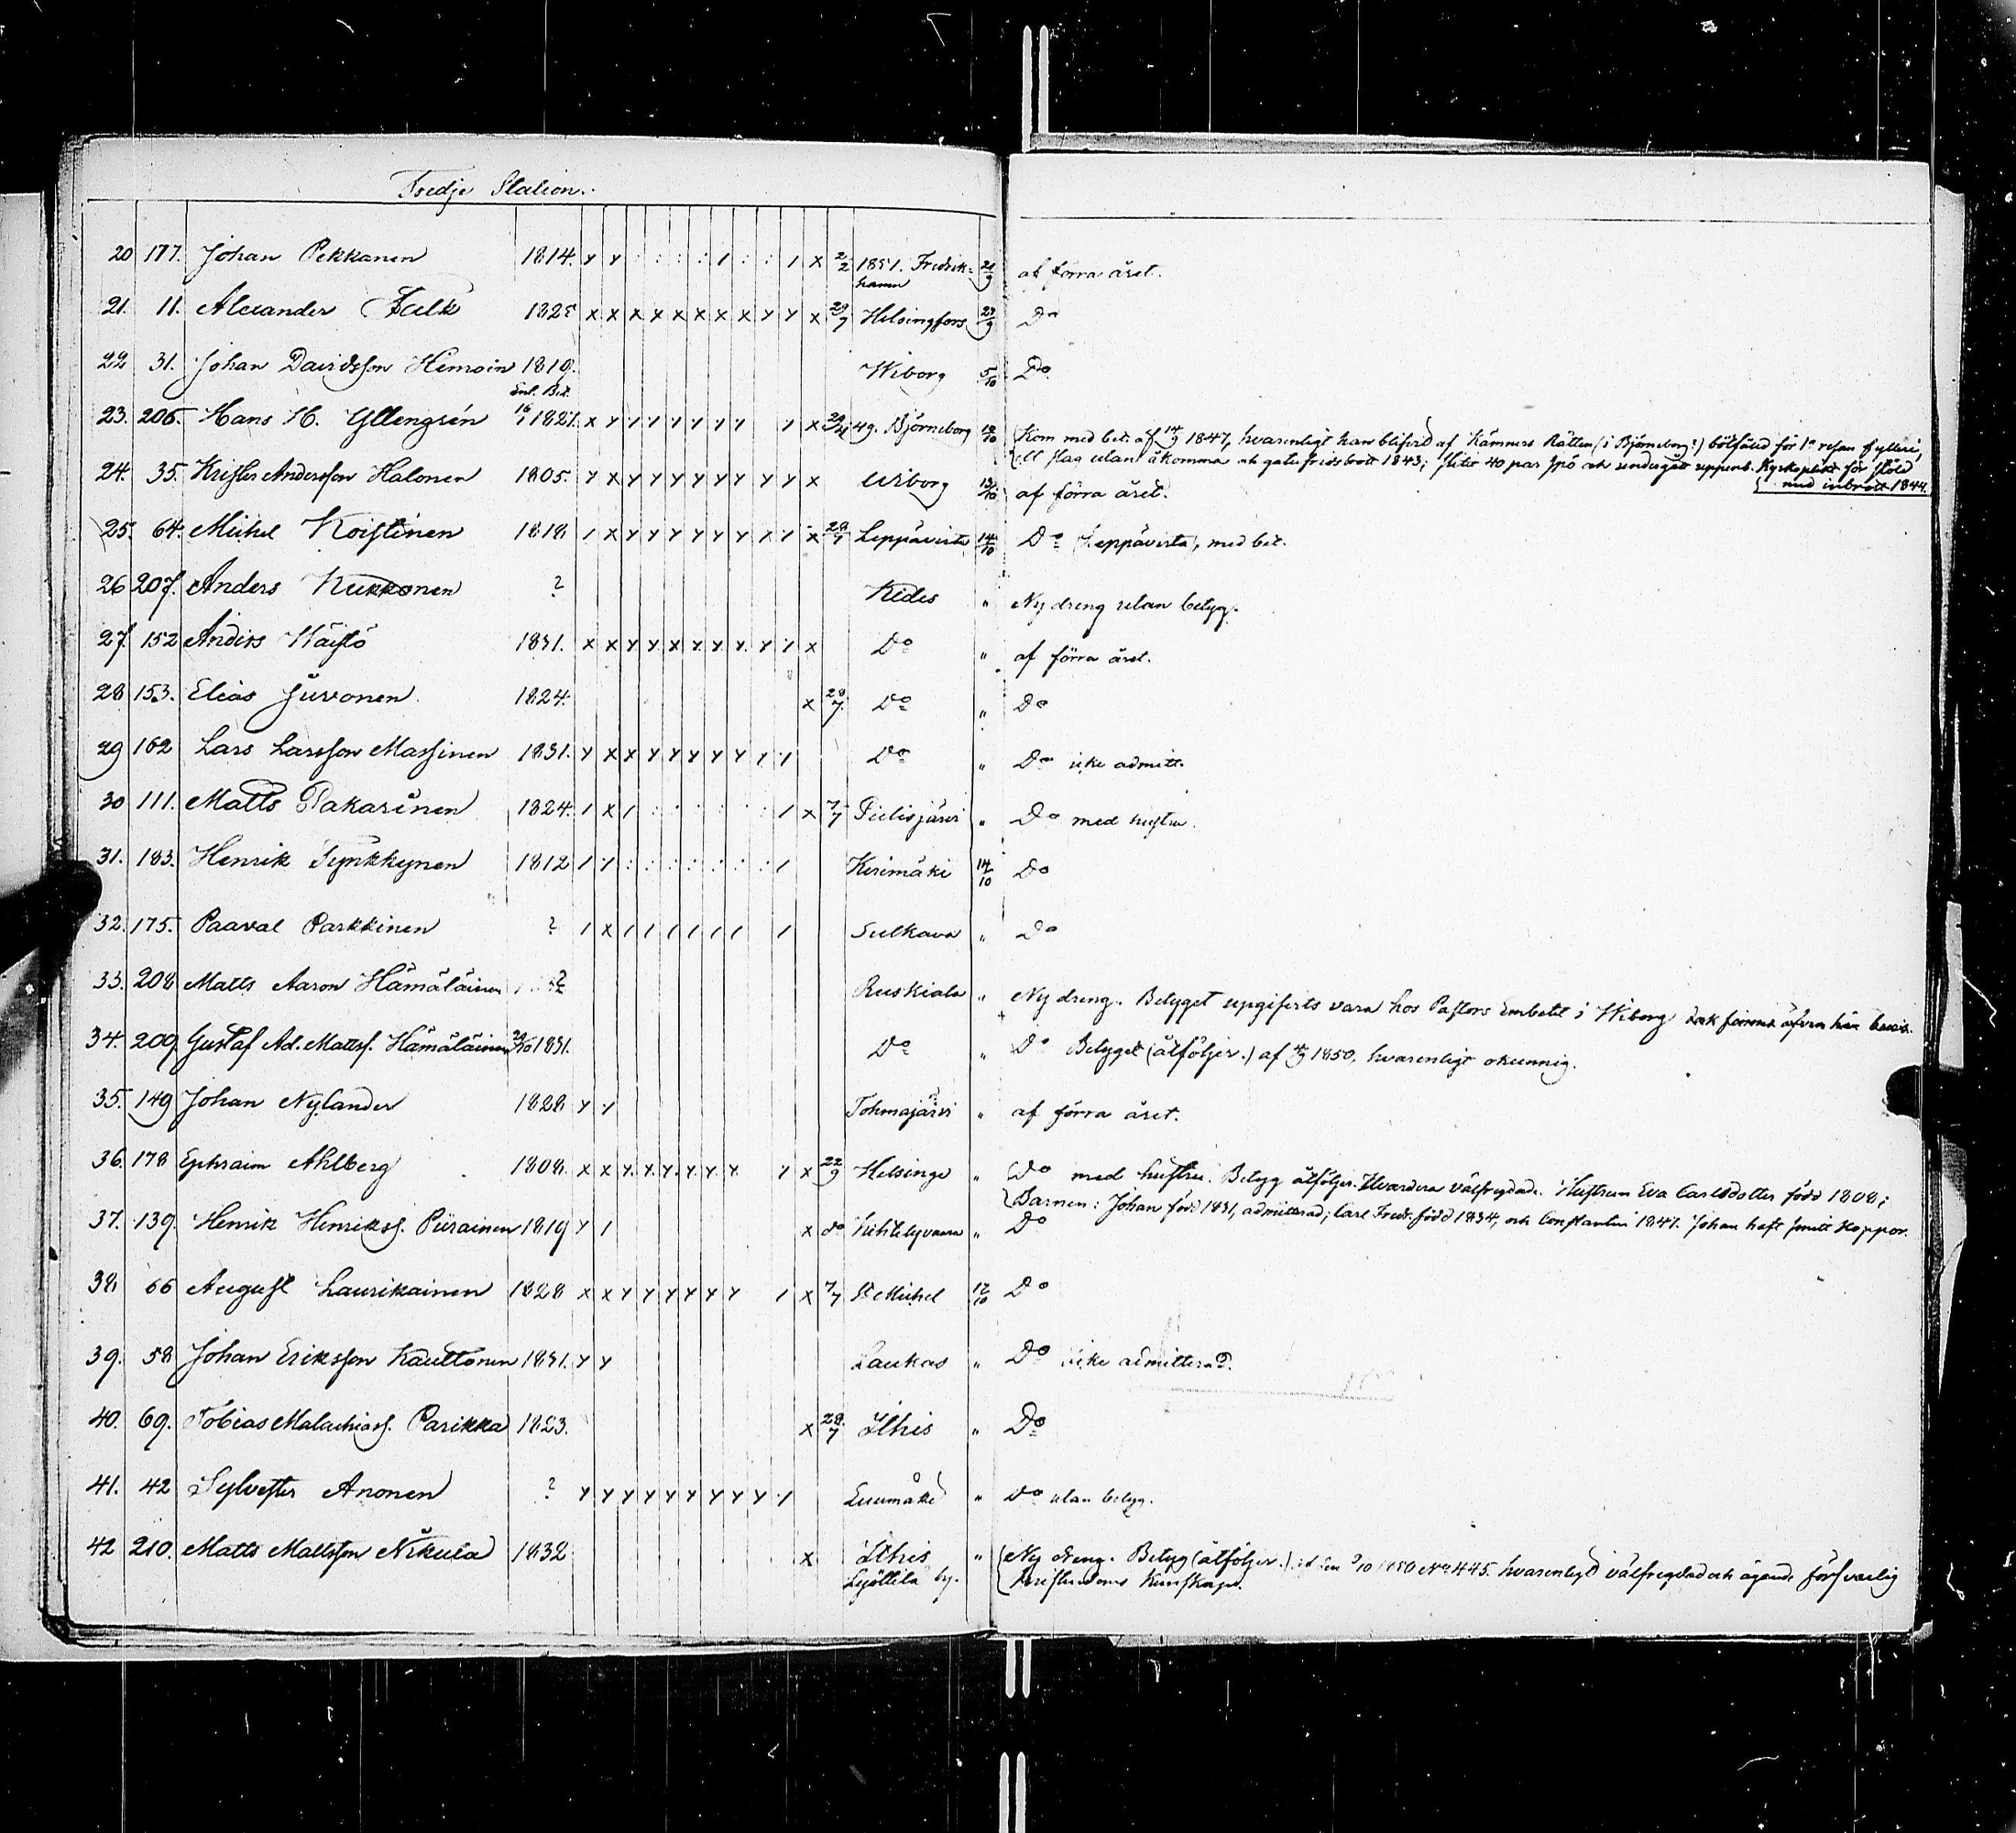 Tredje Station.
20 177. Johan Pekkanen 1814. 2/2 1851. Fredrikshamn 21/9 af förra året.
21. 11. Alexander Falk 1825 29/7 Helsingfors 23/9 Do
22 31. Johan Davidsson Himoin 1819. Wiborg 5/10 Do
Enl. Bet.
23. 206. Hans H. Yllengrén 1827. 49. Björneborg 12/10 Kom med bet. af 14/9 1847, hvarenligt han blifvit af Kämners Rätten (i Björneborg?) bötfäld för 1a resan fylleri,
ett slag utan åkomma och gatufridsbrott 1843; slitit 40 par spö och undergått uppenb. Kyrkoplikt för stöld
med inbrott 1844.
24. 35. Krister Andersson Halonen 1805. Wiborg 13/10 af förra året.
25. 64. Michel Koistinen 1818 28/7 Leppävirta 14/10 Do (Leppävirta), med bet.
26 207. Anders Kukkonen ? Kides " Ny dreng utan betyg.
27. 152 Anders Wäistö 1831. Do " af förra året.
28 153. Elias Juvonen 1824. 28/7 Do " Do
29 162 Lars Larsson Massinen 1831. Do " Do icke admitt.
30 111. Matts Pakarinen 1824. 7/7 Pielisjärvi " Do med hustru.
31. 183. Henrik Tynkkynen 1812 Kerimäki 14/10 Do
32. 175. Paaval Parkkinen ? Sulkava " Do
33. 208 Matts Aaron Hämäläinen ? Ruskiala " Ny dreng. Betyget uppgifvits vara hos Pastors Embetet i Wiborg
34. 209. Gustaf Ad. Mattss. Hämäläinen 1831. Do " Do Betyget (åtföljer.) af 1850, hvarenligt okunnig.
35. 149 Johan Nylander 1828 Tohmajärvi " af förra året.
36. 178 Ephraim Ahlberg 1808. 22/9 Helsinge " Do med hustru. Betyg åtföljer. Hvardera välfrejdade. Hustrun Eva Carlsdotter född 1808;
Barnen: Johan född 1831, admitterad; Carl Fredr. född 1834, och Constantin 1847. Johan haft smitt koppor.
37. 139. Henrik Henrikss. Piirainen 1819 do Kihtelysvaara " Do
38 66 August Laurikainen 1828 7/7 St Michel 17/10 Do
39. 58 Johan Eriksson Kauttonen 1831. Laukas " Do icke admitterad.
40. 69. Tobias Malachiass. Parikka 1823. 28/7 Ithis " Do
41. 42 Sylvester Anonen ? Luumäki " Do utan betyg.
42 210. Matts Mattsson Nikula 1832 Ithis " Ny dreng. Betyg (åtföljer.) 1850 No 445. hvarenligt välfrejdad och ägande försvarlig
by. Kristendoms Kunskaper.